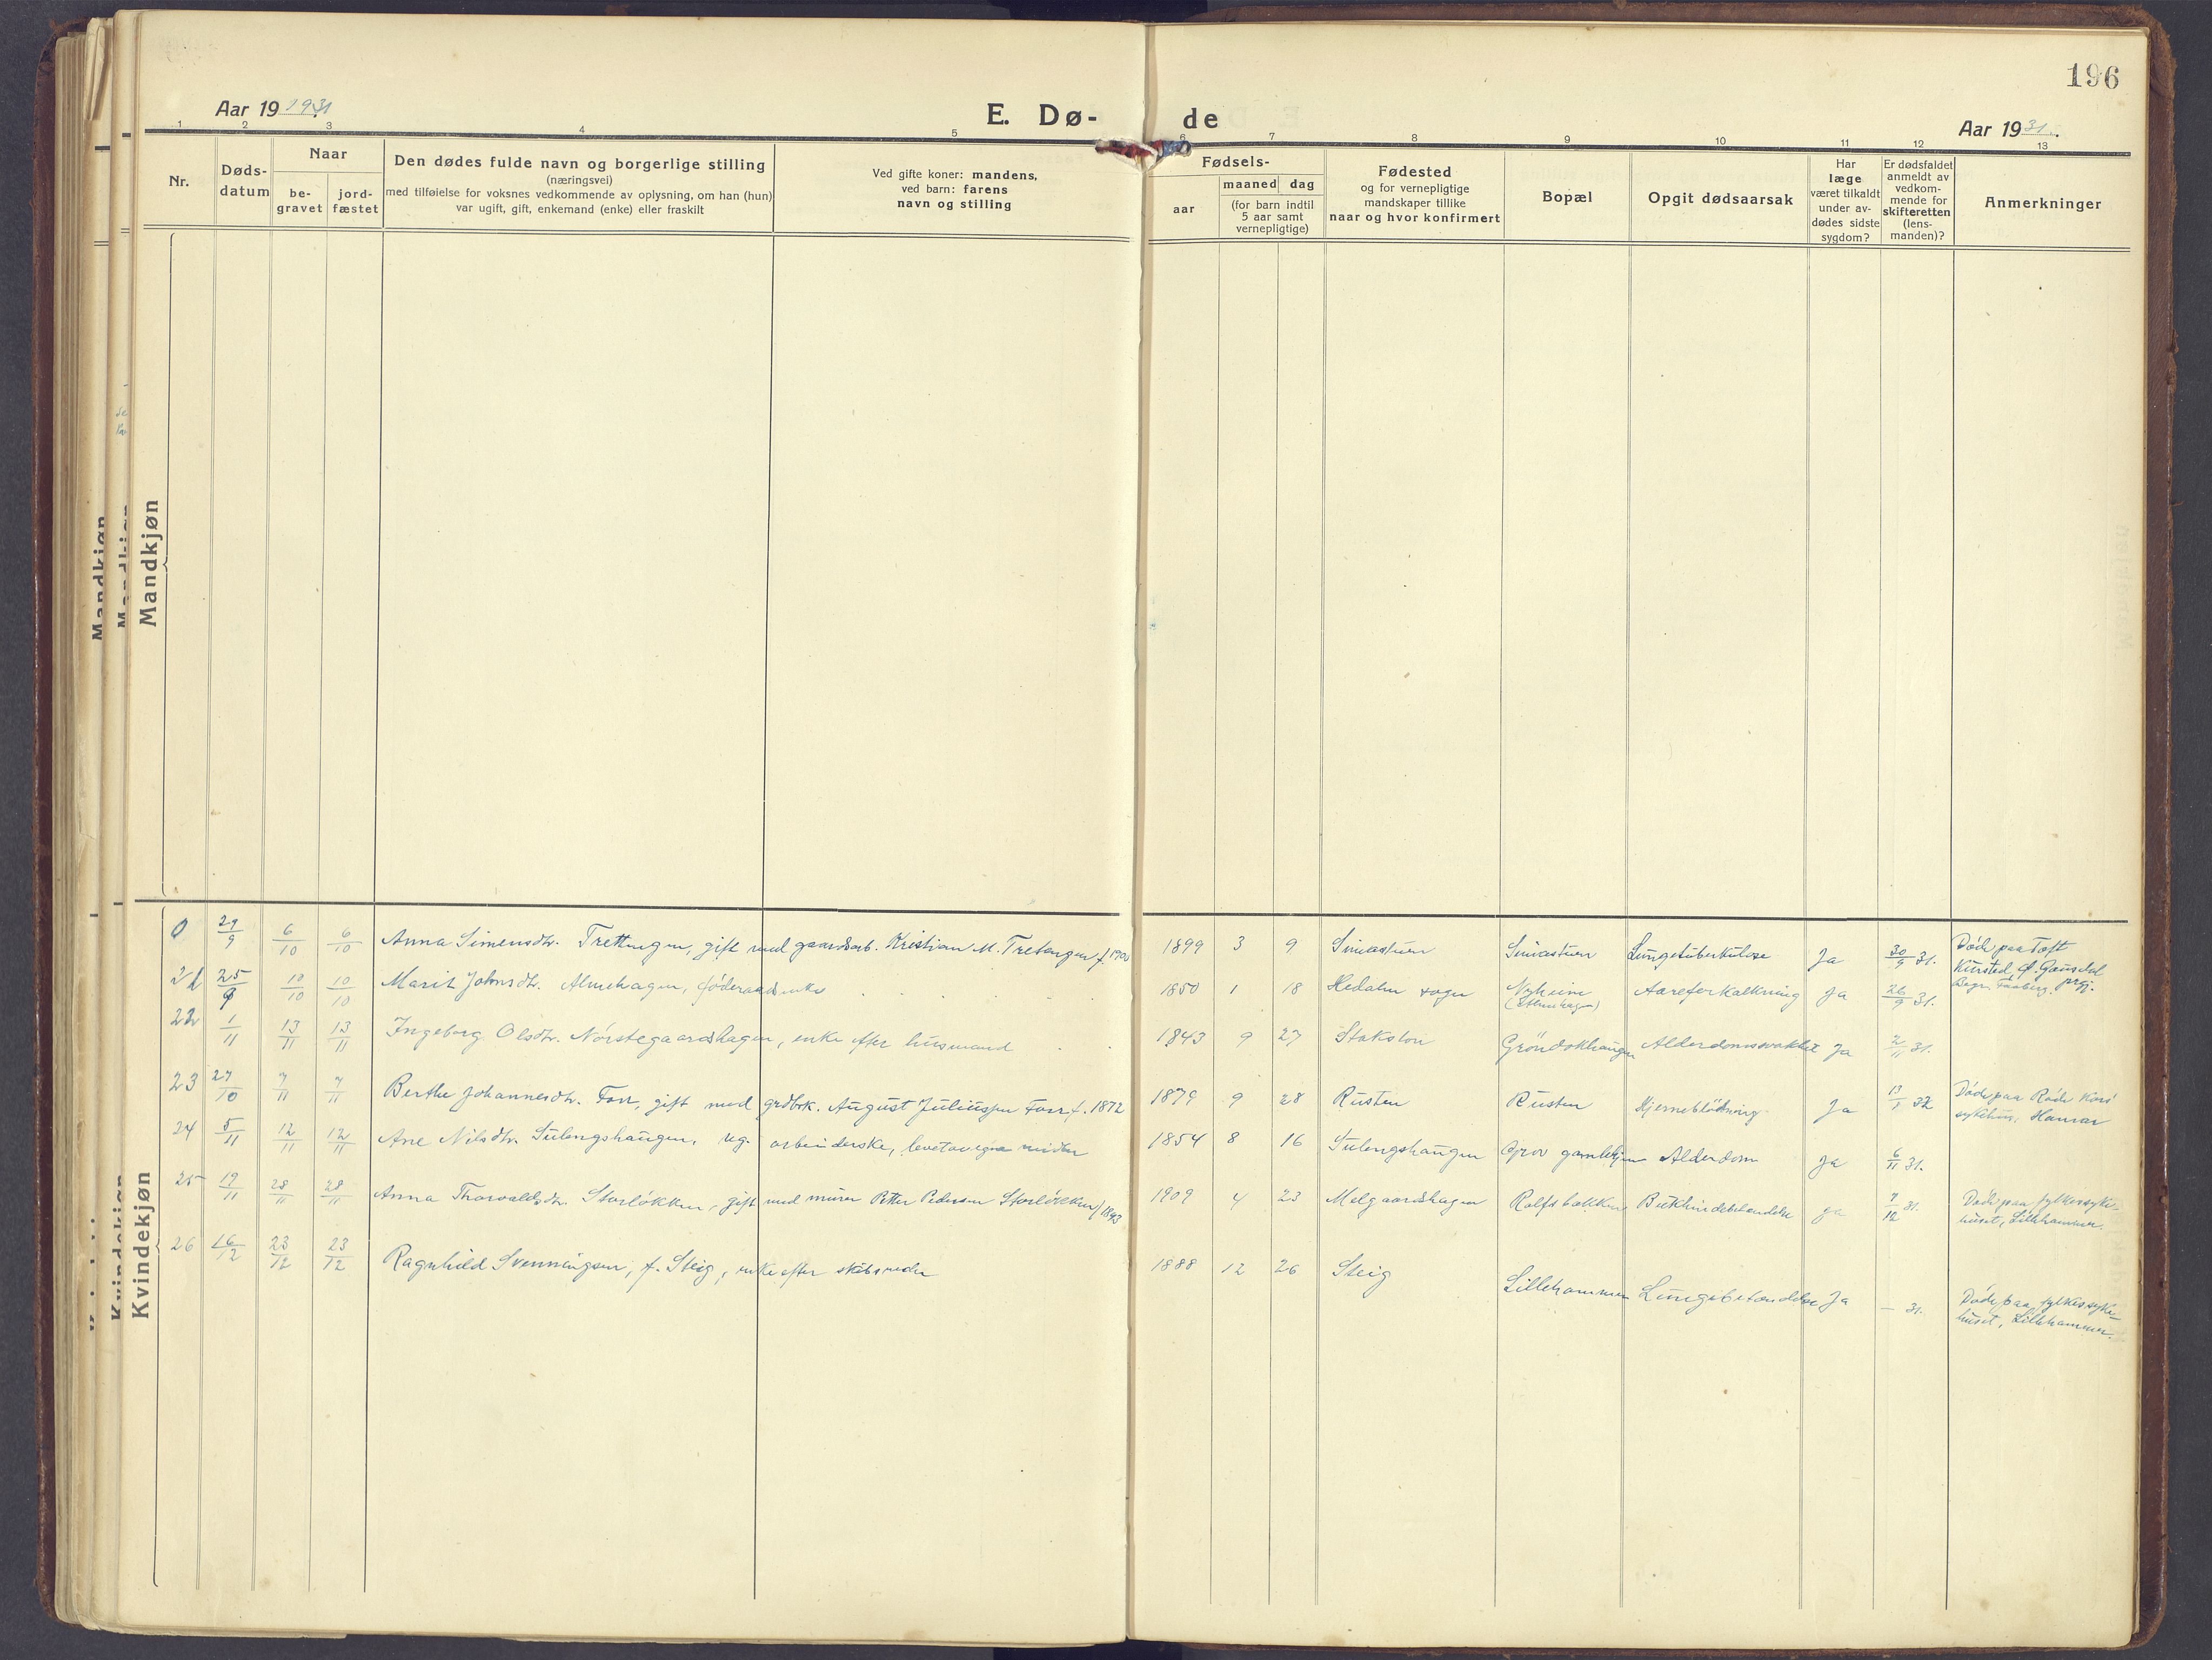 196
Aar 19 1931
E. Dø-
de
Aar 19 31.
1 2 3 4 5 6 7 8 9 10 11 12 13
Nr.
Døds-
datum
Naar
be-
gravet
jord-
fæstet
Den dødes fulde navn og borgerlige stilling
(næringsvei)
med tilføielse for voksnes vedkommende av oplysning, om han (hun)
var ugift, gift, enkemand (enke) eller fraskilt
Ved gifte koner: mandens,
ved barn: farens
navn og stilling
Fødsels-
aar
maaned dag
(for barn indtil
5 aar samt
vernepligtige)
Fødested
og for vernepligtige
mandskaper tillike
naar og hvor konfirmert
Bopæl
Opgit dødsaarsak
Har
læge
været tilkaldt
under av-
dødes sidste
sygdom?
Er dødsfaldet
anmeldt av
vedkom-
mende for
skifteretten
(lens-
manden)?
Anmerkninger
Mandkjøn
Kvindekjøn
0 29/9 6/10 6/10 Anna Simensdtr. Trettengen, gift med gaardsarb. Kristian M. Tretengen f. 1900 1899 3 9 Simastuen Simastuen Lungetuberkulose Ja 30/9 31. Døde paa Toft
Kursted, Ø. Gausdal prgj.
Begr. Faaberg.
21 25/9 10/10 10/10 Marit Johnsdtr. Almehagen, føderaadsenke 1850 1 18 Hedalen sogn Nyheim Aareforkalkning Ja 26/9 31.
(Almehagen)
22 1/11 13/11 13/11 Ingeborg Olsdtr. Nørstegaardshagen, enke efter husmand 1843 9 27 Stokston Alderdomssvakhet Ja 2/11 31.
23 27/10 7/11 7/11 Berthe Johannesdtr. Forr, gift med grdbrk. August Juliussen Forr f. 1872 1879 9 28 Rusten Rusten Hjerneblødning Ja 32 Døde paa Røde Kors'
sykehus, Hamar
24 5/11 12/11 12/11 Ane Nilsdtr. Sulengshaugen, ug. arbeiderske, levet av egne midler 1854 8 16 Sulengshaugen Grov gamlehjem Alderdom Ja 6/11 31.
25 19/11 28/11 28/11 Anna Thorvaldsdtr. Storløkken, gift med murer Petter Pedersen Storløkken f 1893 1909 4 23 Melgaardshagen Rolfsbakken Bukhindebetændelse Ja 7/12 31. Døde paa fylkessyke-
huset, Lillehammer.
26 16/12 23/12 23/12 Ragnhild Svenningsen, f. Steig, enke efter skibsreder 1888 12 26 Steig Lillehammer Lungebetændelse Ja – 31. Døde paa fylkessyke-
huset, Lillehammer.